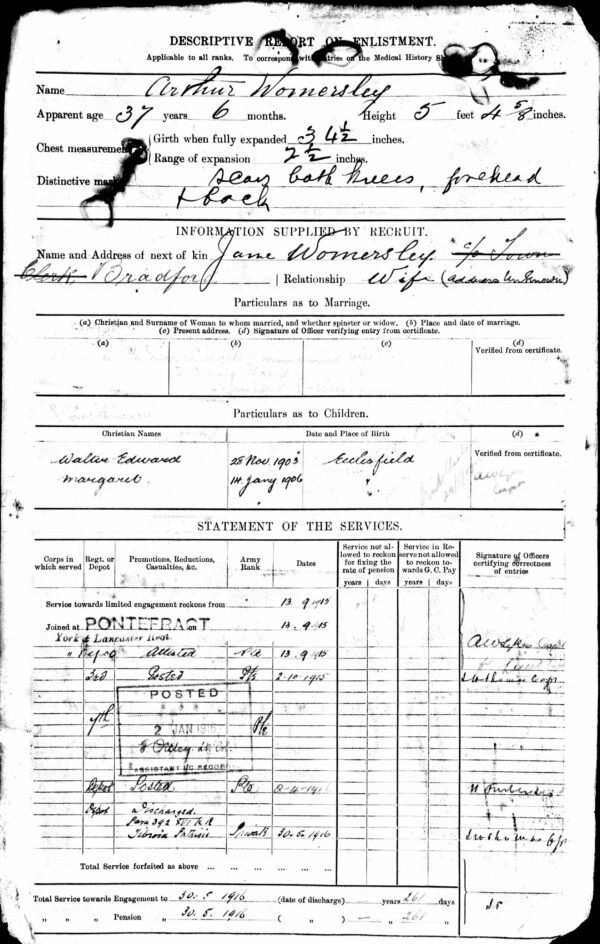 DESCRIPTIVE REPORT ON ENLISTMENT.
Applicable to all ranks. To correspond with entries on the Medical History
Name Arthur Womersley
Apparent age 37 years 6 months. Height 5 feet 4 5/8 inches.
Chest measurement Girth when fully expanded 34 1/2 inches.
Range of expansion 2 1/2 inches.
Distinctive scars both knees, forehead
& back
INFORMATION SUPPLIED BY RECRUIT.
Name and Address of next of kin Jane Womersley c/o Town
Clerk, Bradford | Relationship Wife (address unknown)
Particulars as to Marriage.
(a) Christian and Surname of Woman to whom married, and whether spinster or widow. (b) Place and date of marriage.
(c) Present address. (d) Signature of Officer verifying entry from certificate.
(a) (b) (c) (d)
Verified from certificate.
Particulars as to Children.
Christian Names Date and Place of Birth (d)
Verified from certificate.
Walter Edward 28 Nov. 1903 Ecclesfield
Margaret 14 Jany 1906 "
STATEMENT OF THE SERVICES.
Corps in which served Regt. or Depot Promotions, Reductions, Casualties, &c. Army Rank Dates Service not allowed to reckon for fixing the rate of pension Service in Reserve not allowed to reckon towards G. C. Pay Signature of Officers certifying correctness of entries
years days years days
Service towards limited engagement reckons from 13.9.15
Joined at PONTEFRACT on 13.9.15
York & Lancaster Regt.
" Depot Attested Pte 13.9.15
3rd Posted Pte 2.10.1915
POSTED
7th 2 JAN 1916 Pte
ASSISTANT I/C RECORDS
Depot Posted Pte 8-4-1916
Depot Discharged.
Para 392 XVI K.R
Private 30.5.1916
Total Service forfeited as above ... ... ...
Total Service towards Engagement to 30.5.1916 (date of discharge) years 261 days
" " " Pension " 30.5.1916 ( " ) — " 261 "